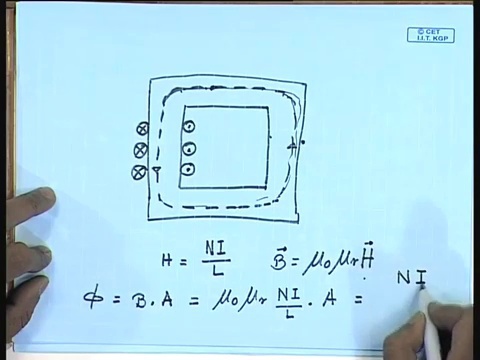 © CET
I.I.T. KGP
H = NI/L    B⃗ = μ₀μᵣH⃗
ϕ = B.A = μ₀μᵣ NI/L . A = NI